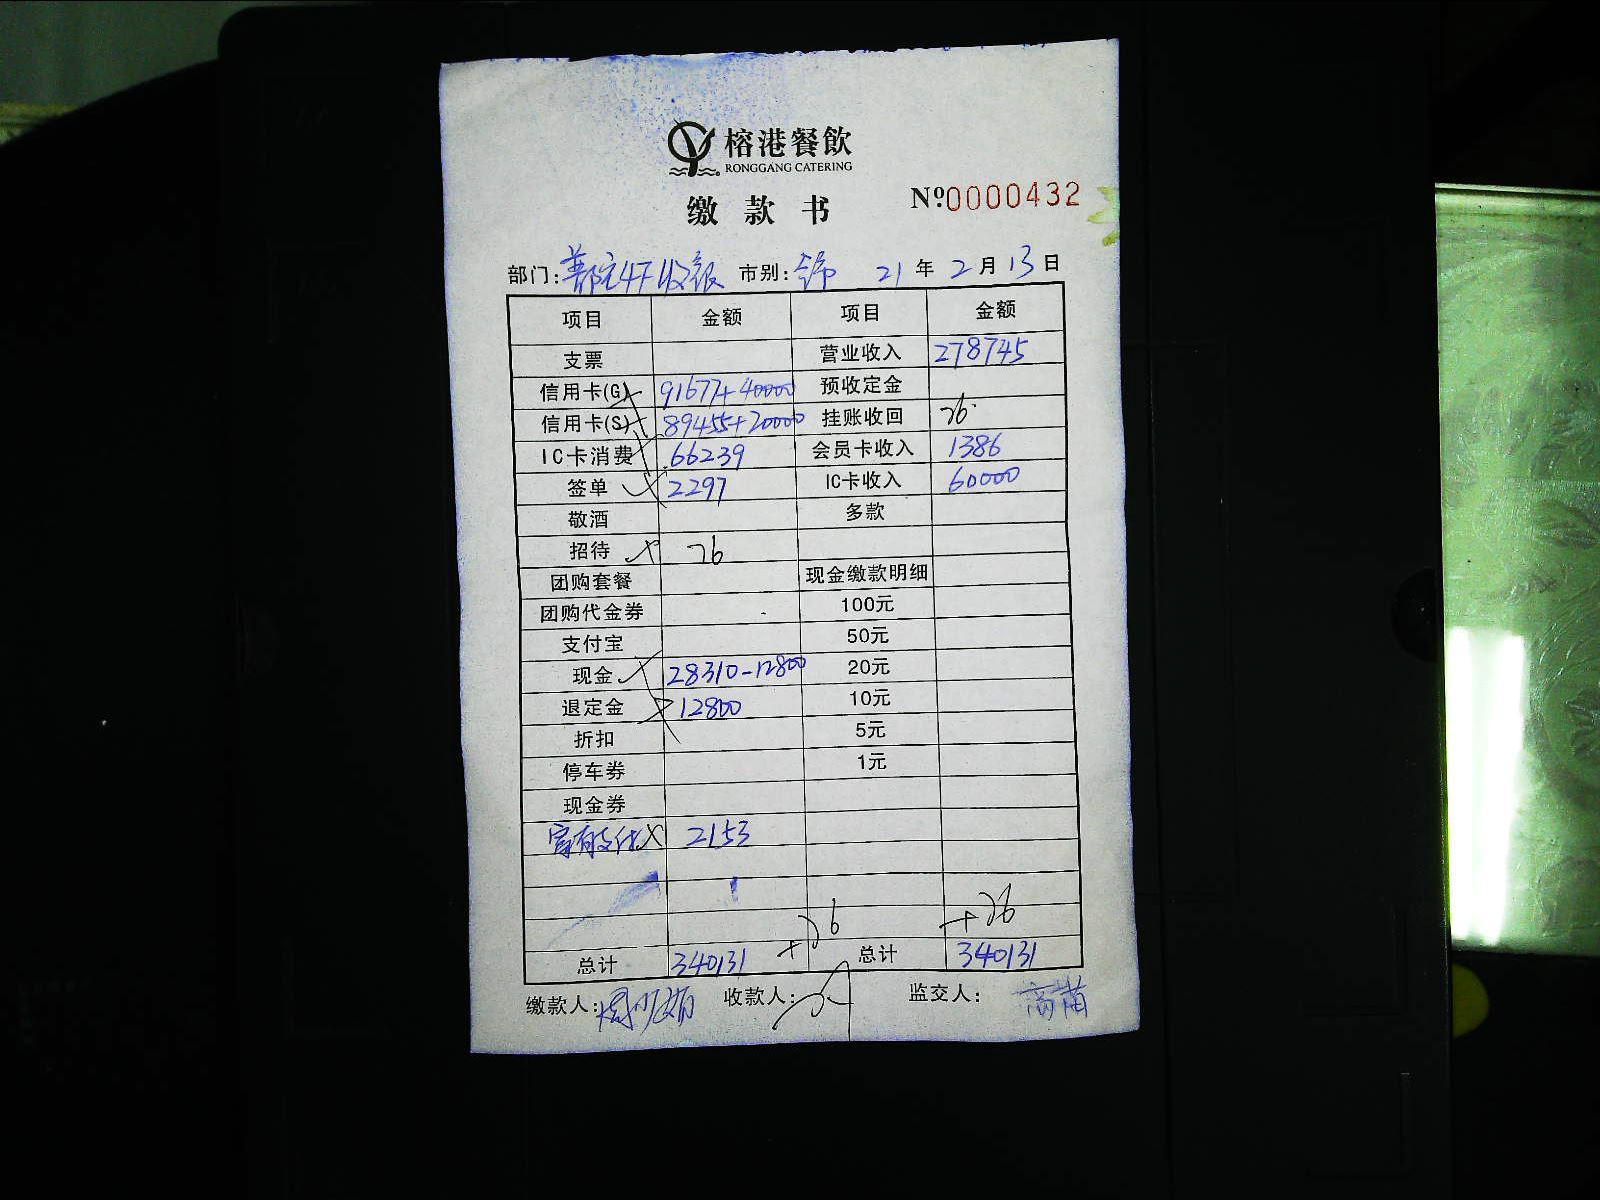 榕港餐飲
RONGGANG CATERING
缴款书 Nº:0000432
部门: 4F收银 市别: 全市 21年2月13日
项目 金额 项目 金额
支票 营业收入 278745
信用卡(G) 91677+40000 预收定金
信用卡(S) 89455+20000 挂账收回 26
IC卡消费 66239 会员卡收入 1386
签单 2297 IC卡收入 60000
敬酒 多款
招待 26
团购套餐 现金缴款明细
团购代金券 100元
支付宝 50元
现金 28310-12800 20元
退定金 12800 10元
折扣 5元
停车券 1元
现金券
2153
+26 +26
总计 340131 总计 340131
缴款人: 收款人: 监交人: 高苗